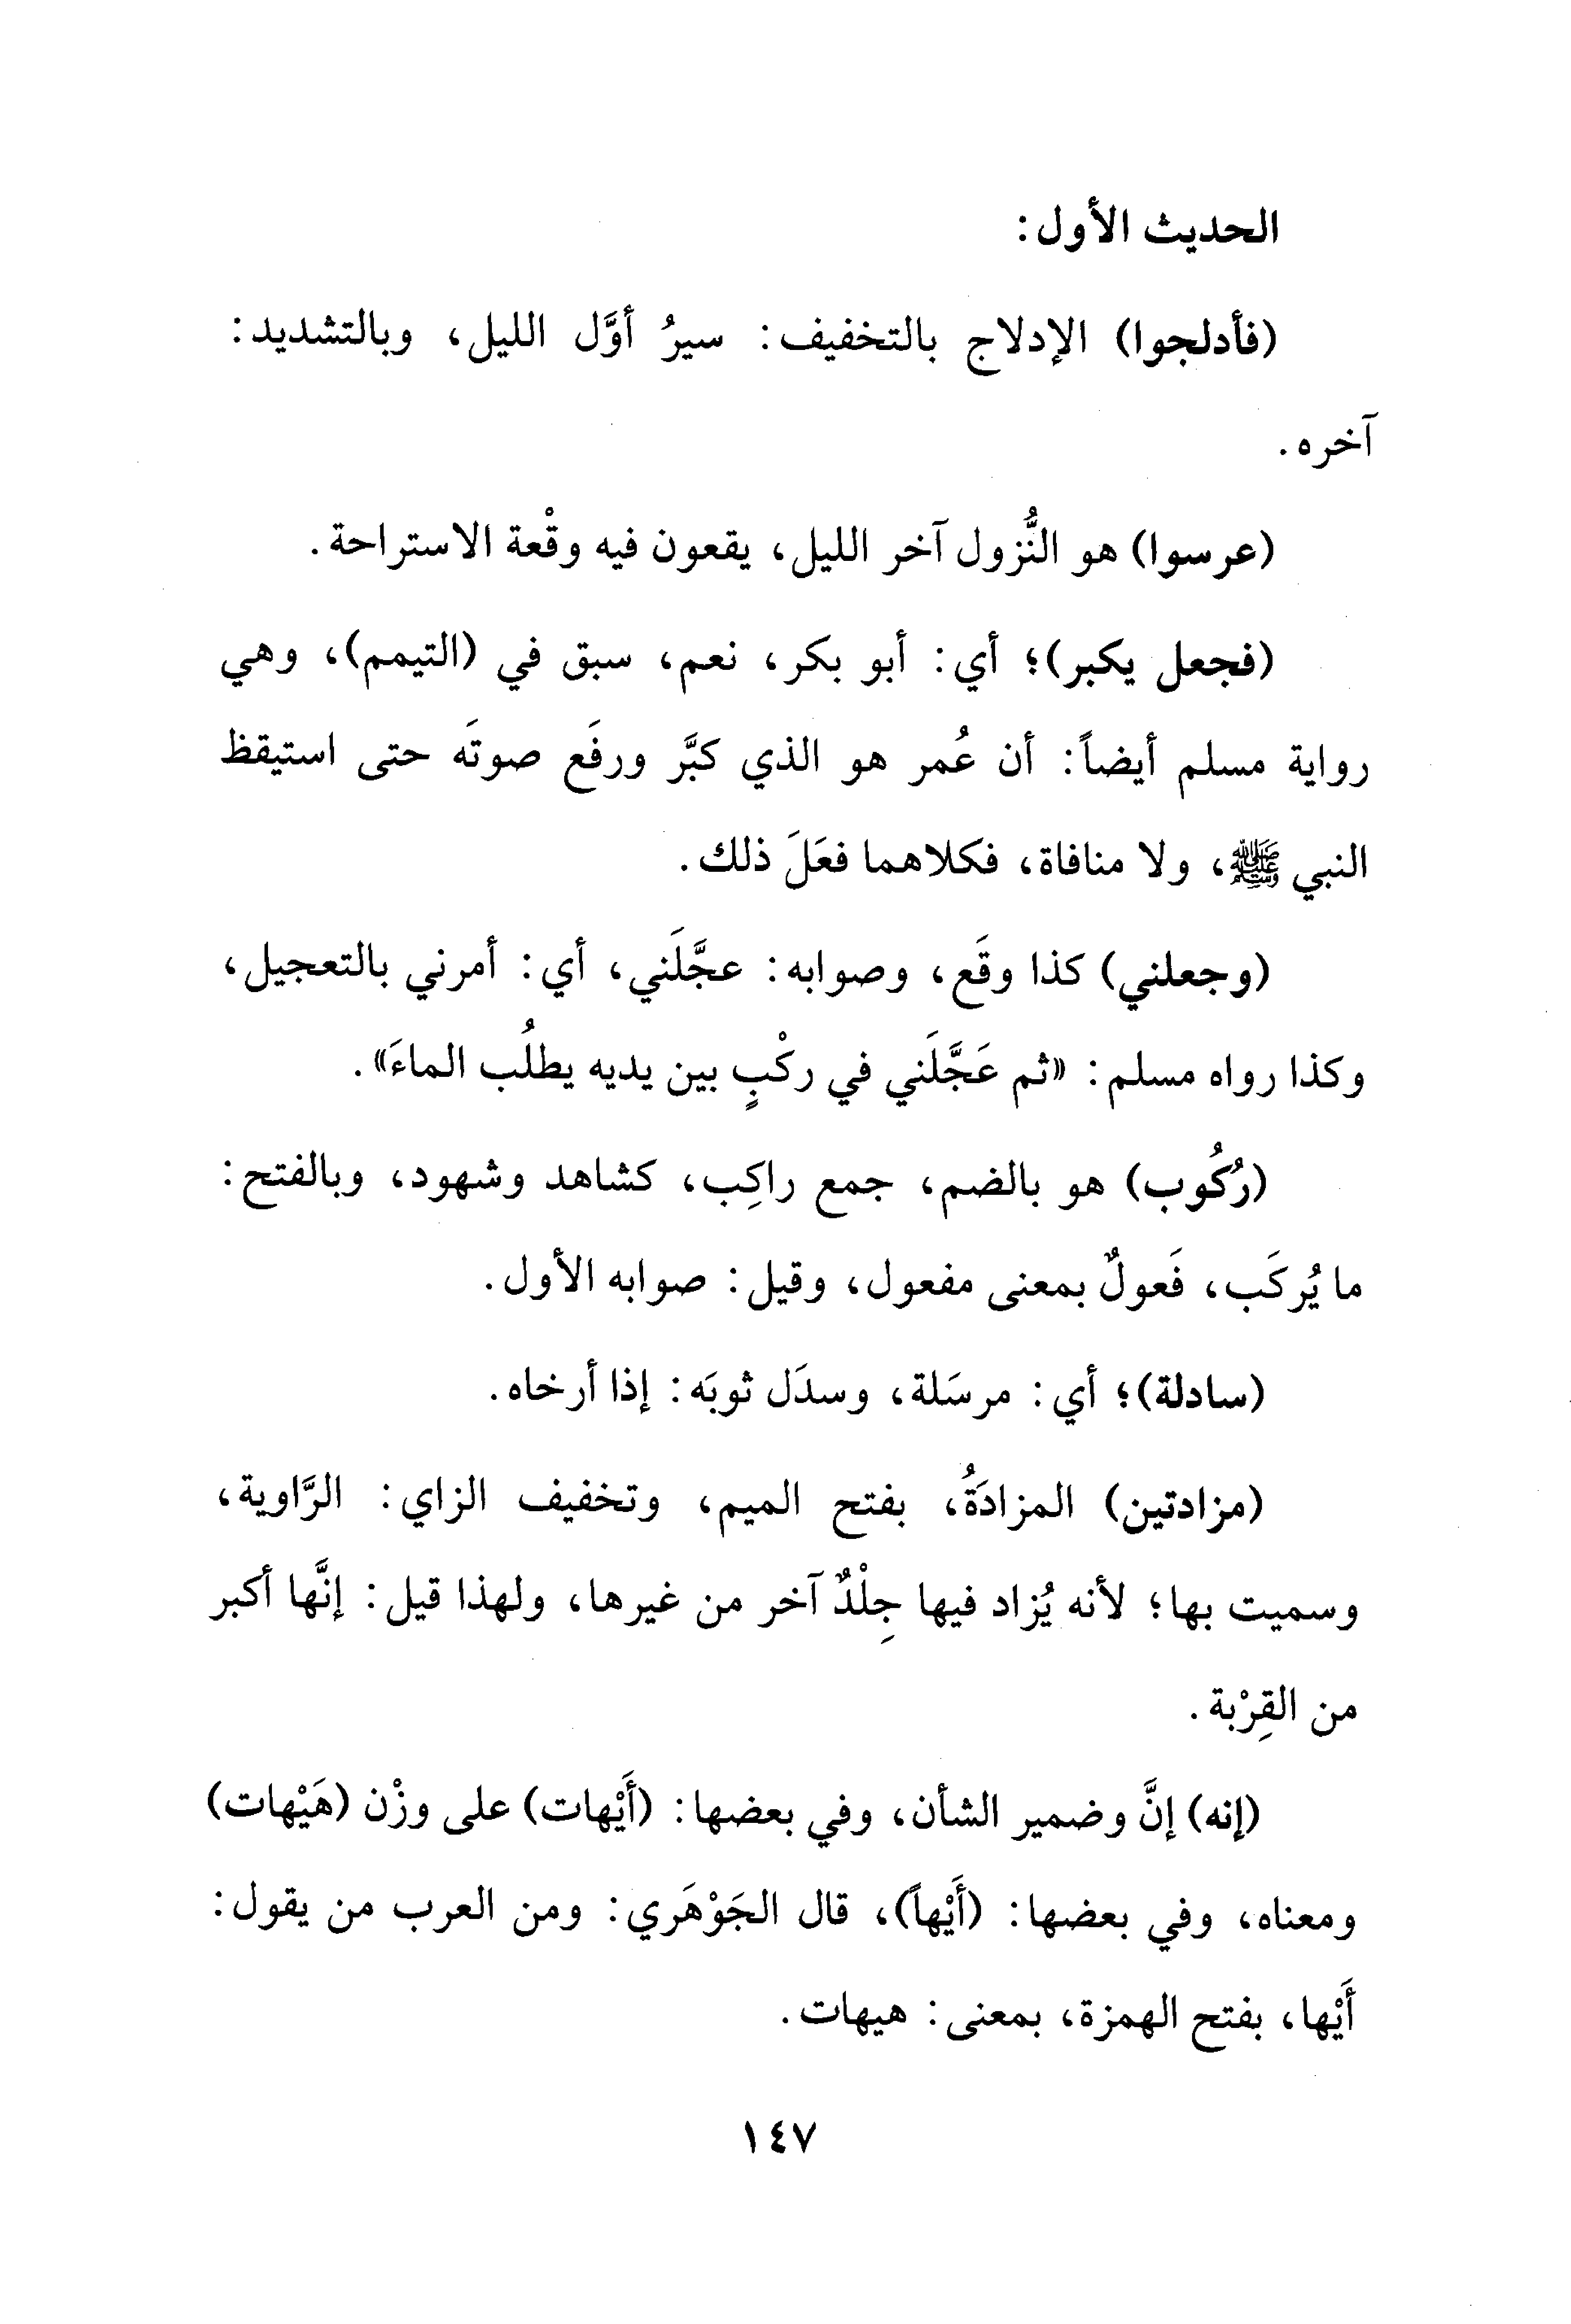 الحديث الأول:
(فأدلجوا) الإدلاج بالتخفيف: سيرُ أوَّل الليل، وبالتشديد:
آخره.
(عرسوا) هو النُّزول آخر الليل، يقعون فيه وقْعة الاستراحة.
(فجعل يكبر)؛ أي: أبو بكر، نعم، سبق في (التيمم)، وهي
رواية مسلم أيضاً: أن عُمر هو الذي كبَّر ورفَع صوتَه حتى استيقظ
النبي ﷺ، ولا منافاة، فكلاهما فعَلَ ذلك.
(وجعلني) كذا وقَع، وصوابه: عجَّلَني، أي: أمرني بالتعجيل،
وكذا رواه مسلم: «ثم عَجَّلَني في ركْبٍ بين يديه يطلُب الماءَ».
(رُكُوب) هو بالضم، جمع راكِب، كشاهد وشهود، وبالفتح:
ما يُركَب، فَعولٌ بمعنى مفعول، وقيل: صوابه الأول.
(سادلة)؛ أي: مرسَلة، وسدَل ثوبَه: إذا أرخاه.
(مزادتين) المزادَةُ، بفتح الميم، وتخفيف الزاي: الرَّاوية،
وسميت بها؛ لأنه يُزاد فيها جِلْدٌ آخر من غيرها، ولهذا قيل: إنَّها أكبر
من القِرْبة.
(إنه) إنَّ وضمير الشأن، وفي بعضها: (أَيْهات) على وزْن (هَيْهات)
ومعناه، وفي بعضها: (أَيْهاً)، قال الجَوْهَري: ومن العرب من يقول:
أَيْها، بفتح الهمزة، بمعنى: هيهات.
١٤٧